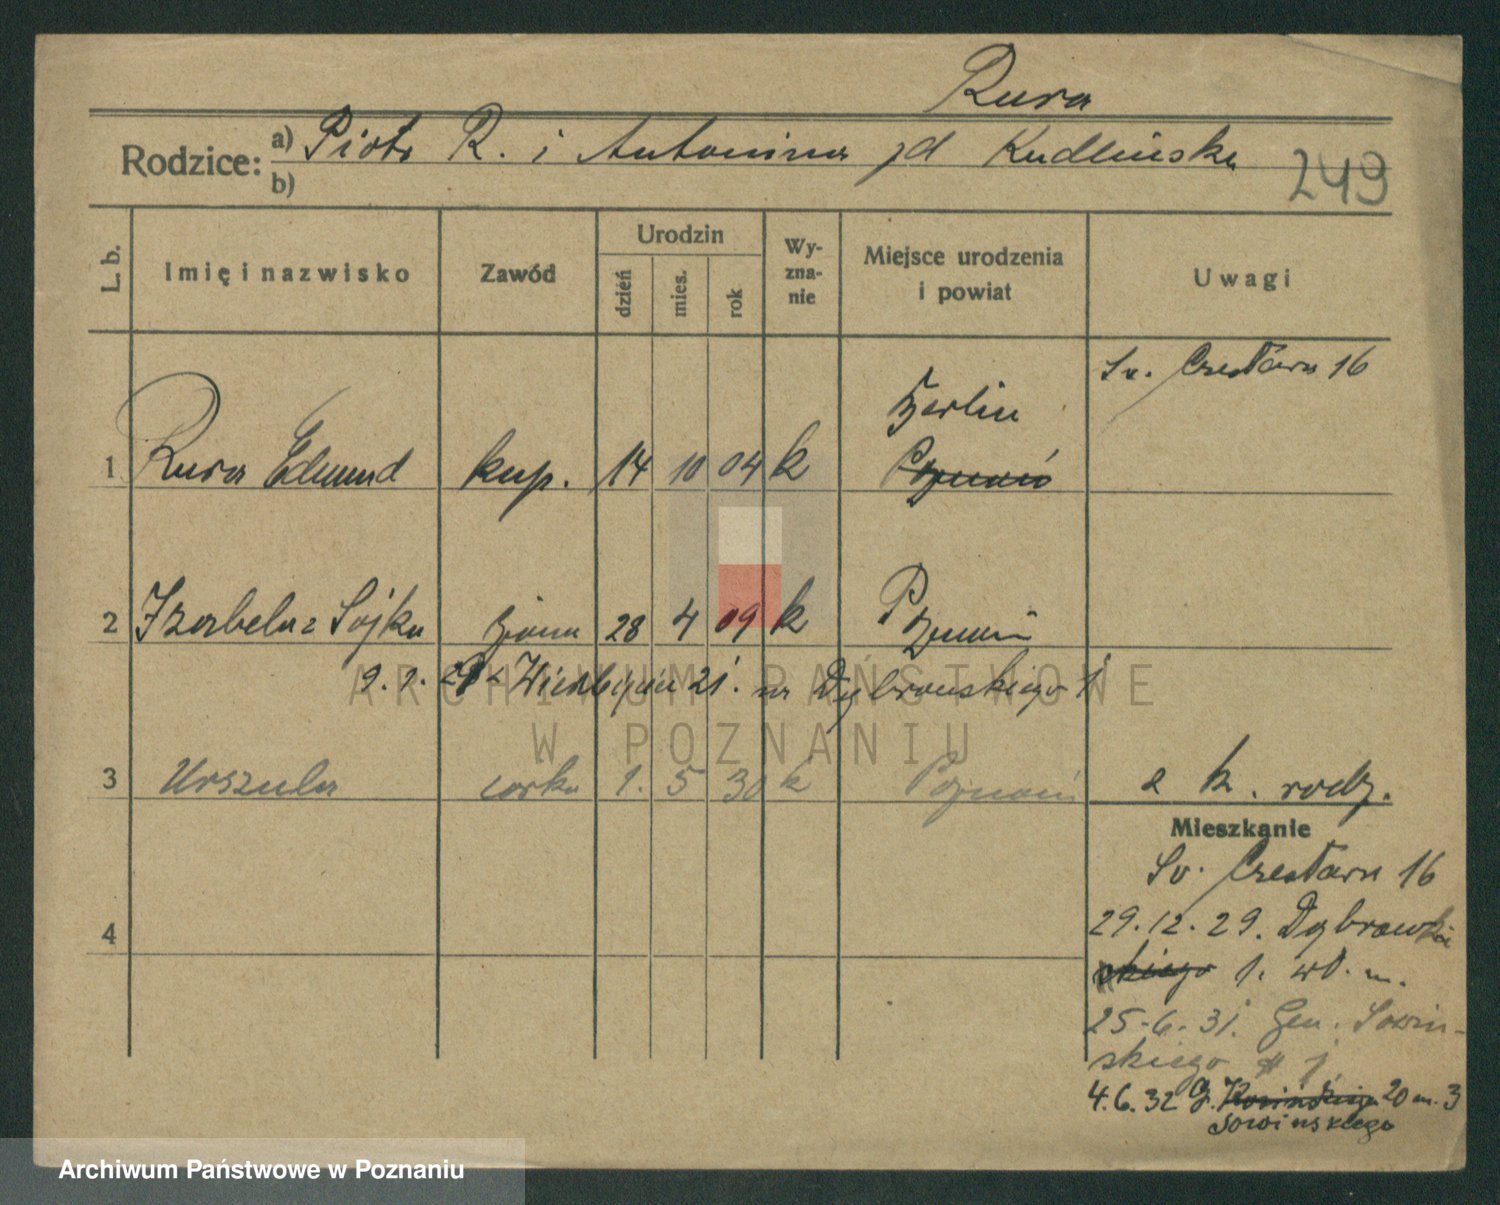 Rura
Rodzice: a) Piotr R. i Antonina zd Kudlińska
b)
249
L. b. Imię i nazwisko Zawód Urodzin dzień mies. rok Wy-zna-nie Miejsce urodzenia i powiat Uwagi
Św. Czesława 16
Berlin
1 Rura Edmund kup. 14 10 04 k Poznań
2 Izabela z Sójka żona 28 4 09 k Poznań
9. 9. 29 z Wierzbięcic 21. na Dąbrowskiego 1
ARCHIWUM PAŃSTWOWE
W POZNANIU
3 Urszula córka 1. 5 30 k Poznań
z k. rodz.
Mieszkanie
Św. Czesława 16
4
29.12.29. Dąbrowski
skiego 1. wł. m.
25.6.31. Gen. Sowiń-
skiego 1
4.6.32 G. 20 m. 3
Sowińskiego
Archiwum Państwowe w Poznaniu